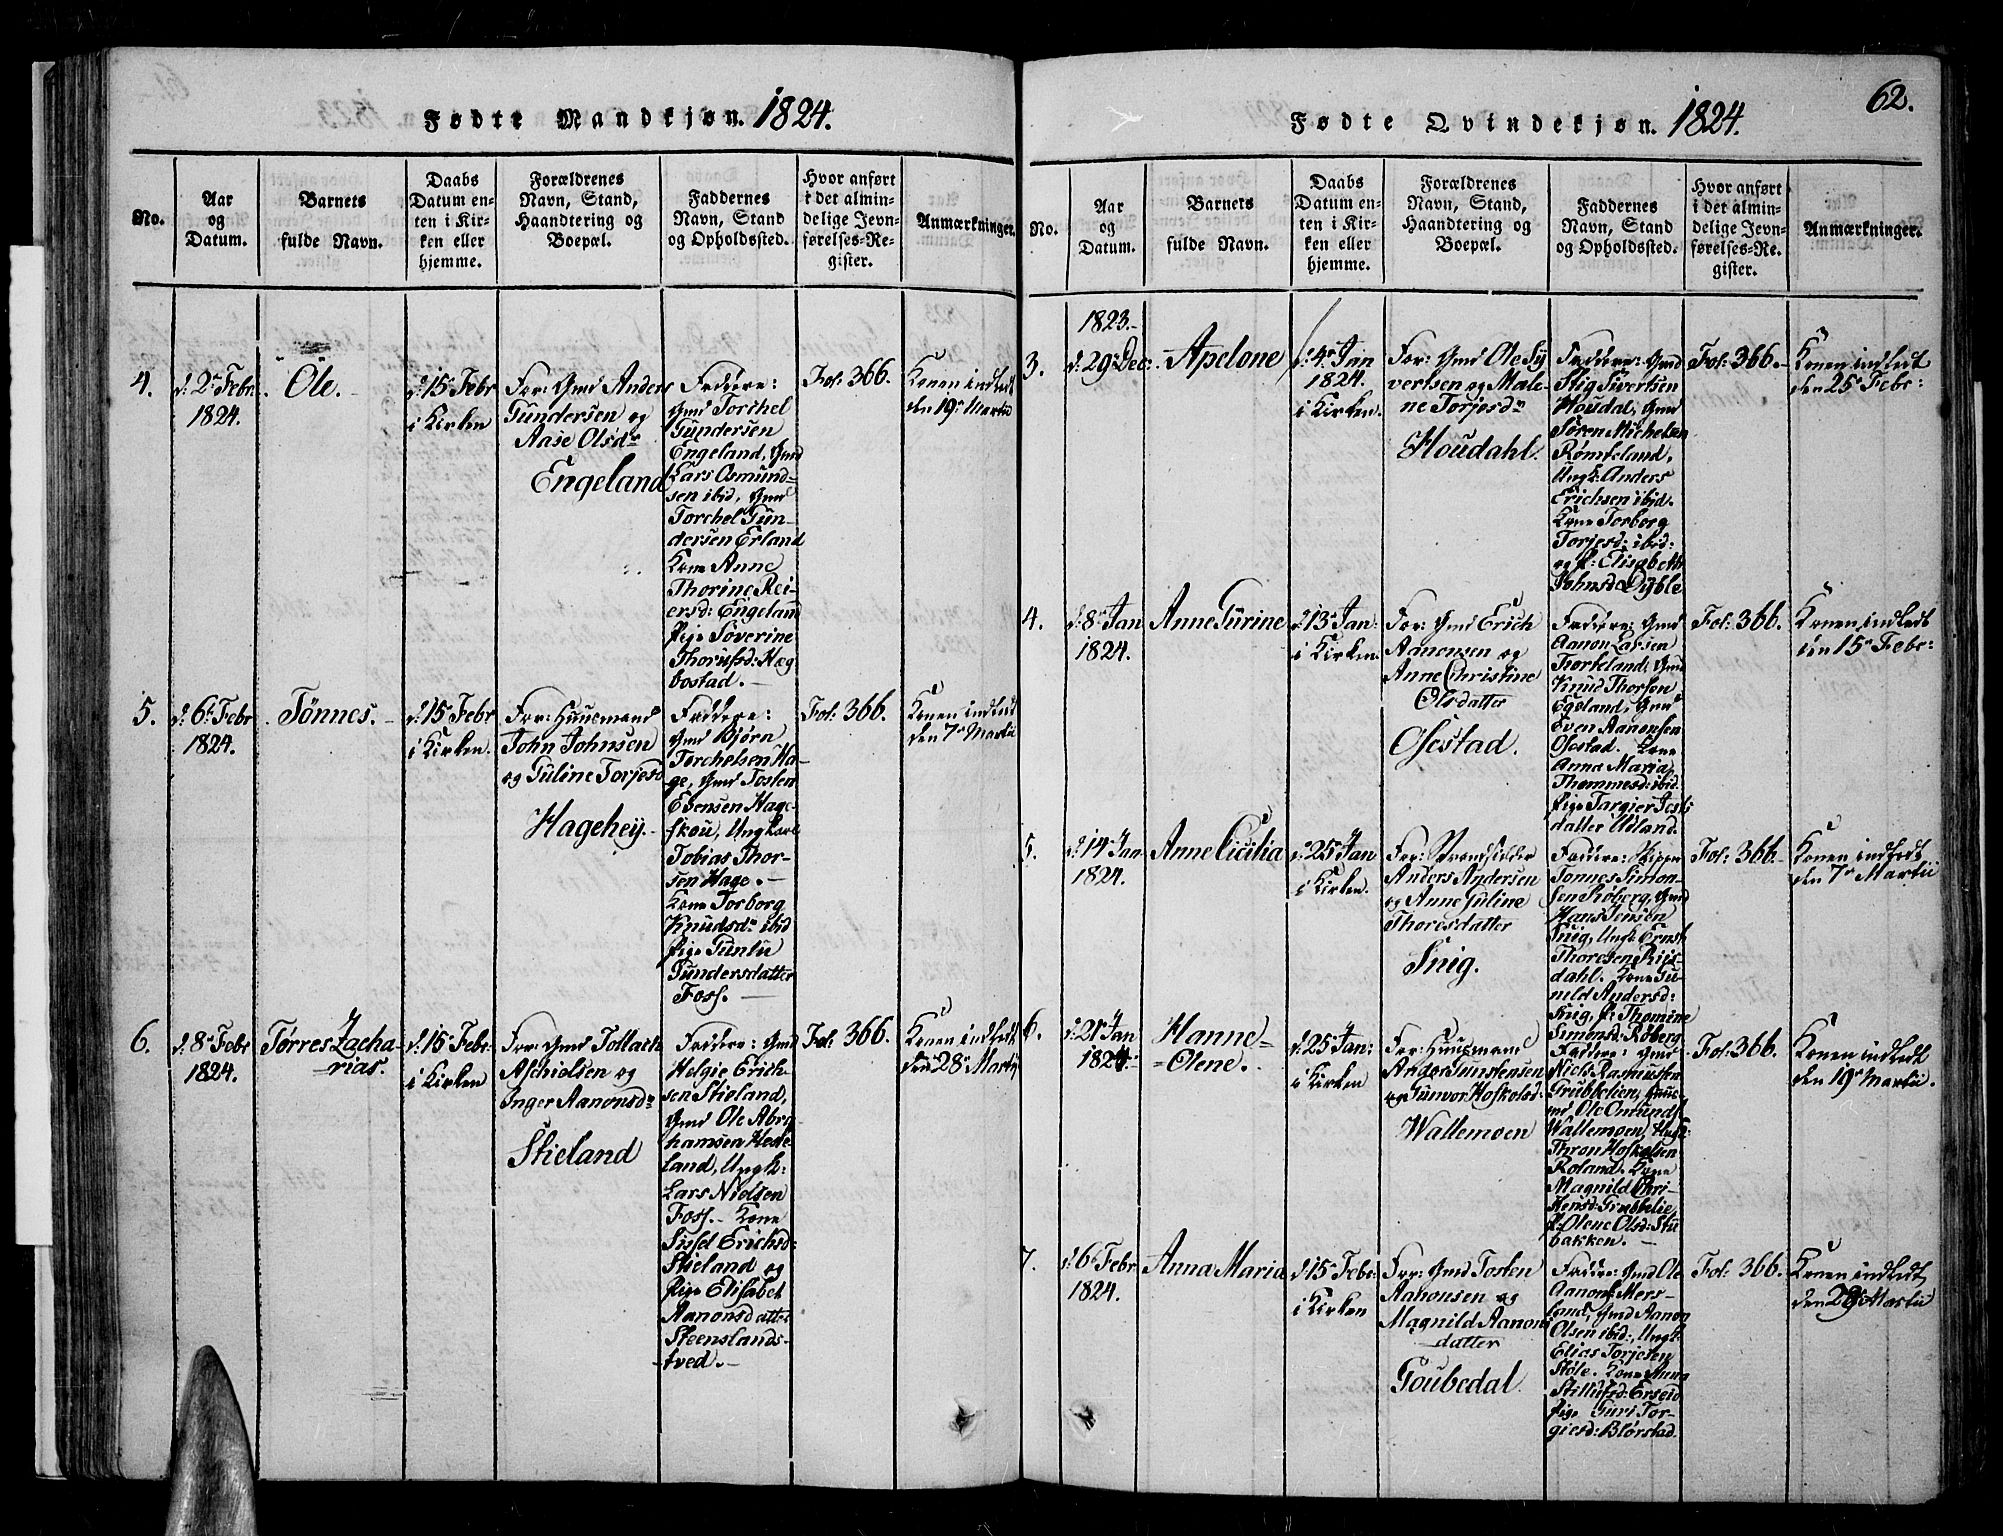 Fødte Mandkjøn. 1824.
No.
Aar
og
Datum.
Barnets
fulde Navn.
Daabs
Datum en-
ten i Kir-
ken eller
hjemme.
Forældrenes
Navn, Stand,
Haandtering og
Boepæl.
Faddernes
Navn, Stand
og Opholdssted.
Hvor anført
i det almin-
delige Jevn-
førelses-Re-
gister.
Anmærkninger.
4.
d: 2 Febr
1824.
Ole.
d: 15 Febr
i Kirken
For: Gmd Anders
Gundersen og
Aase Olsdr
Engeland
Faddere:
Gmd Torchel
Gundersen
Engeland, Gmd
Lars Osmund-
sen ibid, Gmd
Torchel Gun-
dersen Erland
Kone Anne
Thorine Rei-
ersd: Engeland
Pige Søverine
Thorufsd: Hæg
bostad.
Fol: 366.
Konen indledt
den 19 Martii
5.
d: 6 Febr
1824.
Tønnes.
d: 15 Febr
i Kirken.
For: Huusmand
John Johnsen
og Guline Torjesd
Hagehey.
Faddere:
Gmd Bjørn
Torchelsen Ha-
ge, Gmd Tosten
Ebensen Hage-
skou, Ungkarl
Tobias Thor-
sen Hage.
Kone Torborg
Knudsdr ibid
Pige Guntu
Gundersdatter
Foss.
Fol: 366.
Konen indledt
den 7 Martii
6.
d: 8 Febr
1824.
Tørres Zacha-
rias.
d: 15 Febr
i Kirken
For: Gmd Tollach
Aschielsen og
Inger Aanonsdr
Stieland
Faddere: Gmd
Helgie Erich-
sen Stieland,
Gmd Ole Abra
hamsen Hede-
land, Ungk:
Lars Nielsen
Foss. Kone
Sussel Erichsd:
Stieland og
Pige Elisabet
Aanonsdatter
Steenslands-
tved.
Fol: 366.
Konen indledt
den 28 Martii
Fødte Qvindekjøn. 1824.
62.
No.
Aar
og
Datum.
Barnets
fulde Navn.
Daabs
Datum en-
ten i Kir-
ken eller
hjemme.
Forældrenes
Navn, Stand,
Haandtering og
Boepæl.
Faddernes
Navn, Stand
og Opholdssted.
Hvor anført
i det almin-
delige Jevn-
førelses-Re-
gister.
Anmærkninger.
3.
1823.
d: 29 Dec:
Apelone
d: 4 Jan
1824.
i Kirken.
For: Gmd Ole Sy
vertsen og Male-
ne Torjesdr
Houdahl.
Faddere: Gmd
Stig Sivertsen
Houdal, Gmd
Søren Michelsen
Rømteland,
Ungk: Anders
Erichsen ibid.
Kone Torborg
Torjesd: ibid:
og P: Elisabeth
Johnsd: Dyble
Fol: 366.
Konen indledt
den 25 Febr:
4.
d: 8 Jan
1824.
Anne Gurine
d: 13 Jan:
i Kirken.
For: Gmd Erich
Aanensen og
Anne Christine
Olsdatter
Osestad.
Faddere: Gmd
Aanon Lassen
Torkeland, Gmd
Knud Thorsen
Egeland, Gmd
Even Aanonsen
Osestad. Kone
Anna Maria
Thommesd: ibid.
Pige Targier Jesti
datter Udland.
Fol: 366.
Konen indledt
den 15 Febr:
5.
d: 14 Jan
1824.
Anne Cicilia
d: 25 Jan
i Kirken.
For: Strandsidder
Anders Andersen
og Anne Juline
Thoresdatter
Snig.
Faddere: Skipper
Tønnes Simon-
sen Røberg, Gmd
Hans Jensen
Snig, Ungk: Ernst
Thoresen Riis-
dahl. Kone Gu-
nild Andersd:
Snig, P: Thomine
Simonsd: Røberg
Fol: 366.
Konen indledt
den 7 Martii
6.
d: 21 Jan
1824.
Hanne
Olene.
d: 25 Jan:
i Kirken
For: Huusmand
Ander Gunstensen
og Gunvor Hoskolsd:
Wallemoen
Faddere: Gmd
Niels Rasmussen
Grubbelien, Huus-
md Ole Omunds:
Wallemoen, Ungk:
Thron Hoskolsen
Roland. Kone
Magnild Chri-
stensd: Grubbelie
P: Olene Olsd: Stu
bakken.
Fol: 366.
Konen indledt
den 19 Martii.
7.
d: 6 Febr
1824.
Anna Maria
d: 15 Febr:
i Kirken
For: Gmd Tosten
Aanonsen og
Magnild Aanons
datter
Goubedal.
Faddere: Gmd Ole
Aanons: Mers-
land, Gmd Aanon
Olsen ibid:, Ungk:
Elias Torjesen
Støle. Kone Anna
Stillufsd: Erseid
Pige Guri Tor-
giesd: Blørstad.
Fol: 366.
Konen indledt
den 28 Martii